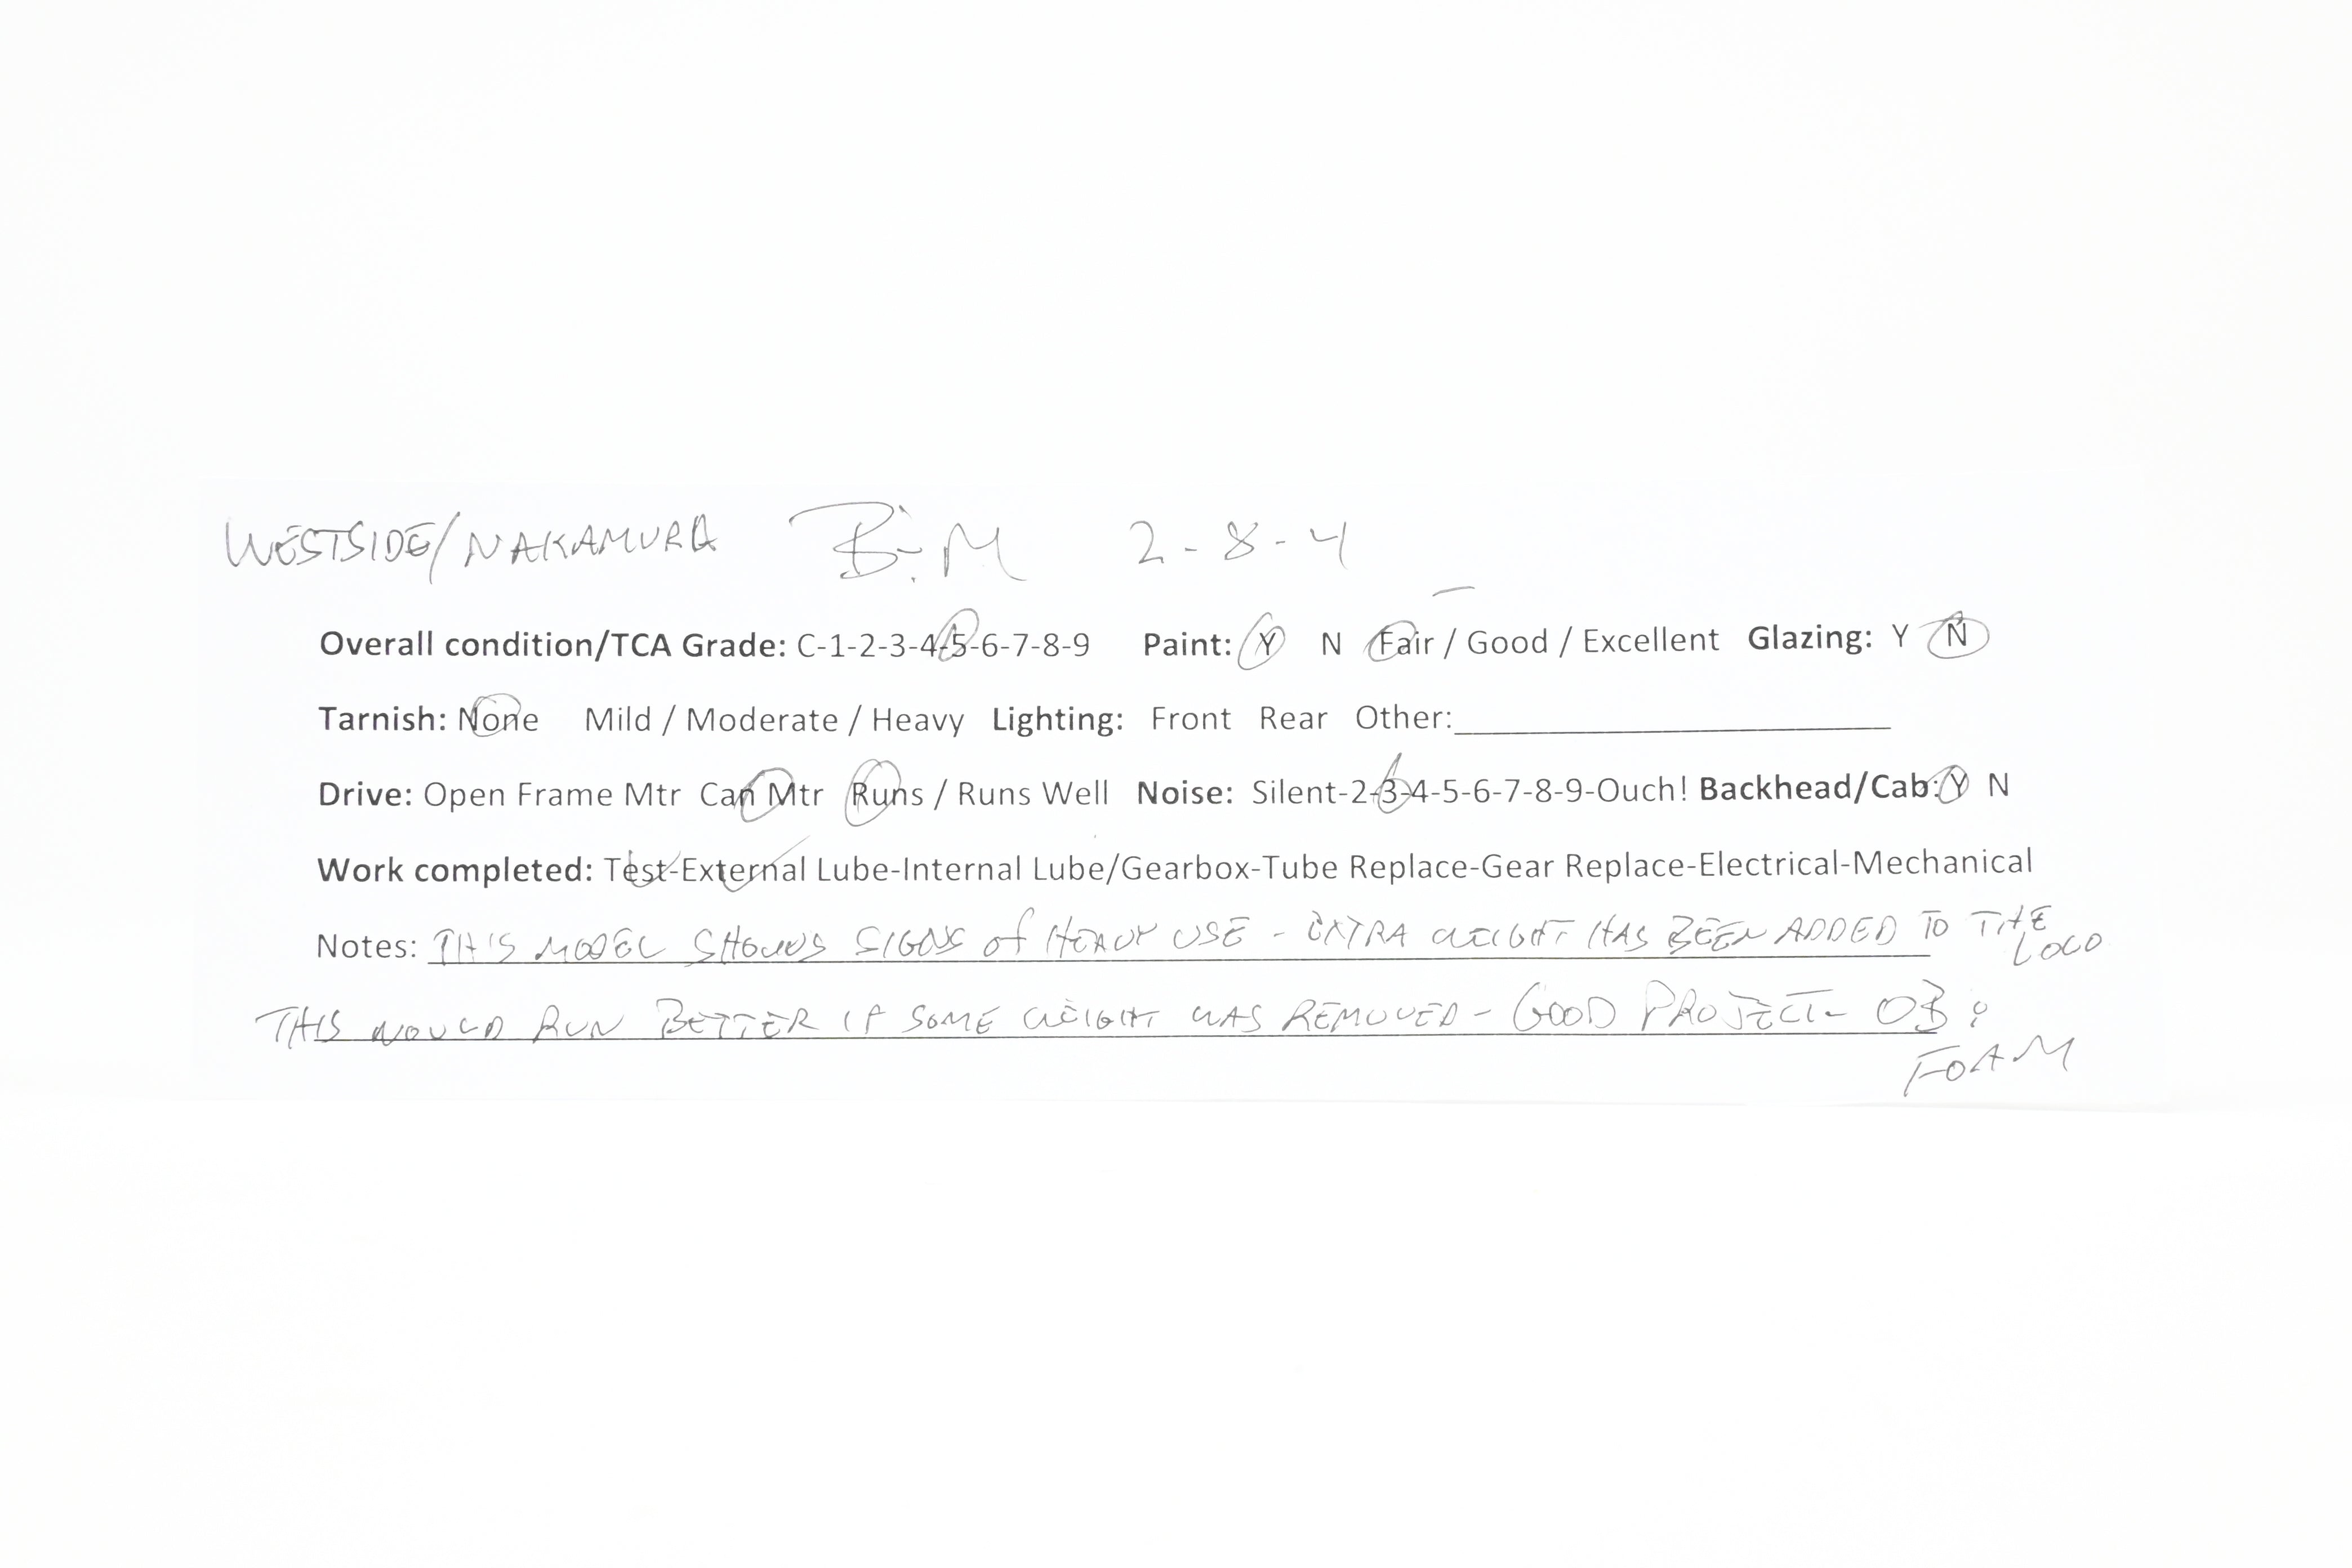 WESTSIDE/NAKAMURA B:M 2-8-4
Overall condition/TCA Grade: C-1-2-3-4-5-6-7-8-9 Paint: Y N Fair / Good / Excellent Glazing: Y N
Tarnish: None Mild / Moderate / Heavy Lighting: Front Rear Other:
Drive: Open Frame Mtr Can Mtr Runs / Runs Well Noise: Silent-2-3-4-5-6-7-8-9-Ouch! Backhead/Cab: Y N
Work completed: Test-External Lube-Internal Lube/Gearbox-Tube Replace-Gear Replace-Electrical-Mechanical
Notes: THIS MODEL SHOWS SIGNS of HEAVY USE - EXTRA WEIGHT HAS BEEN ADDED TO THE
LOCO
THIS WOULD RUN BETTER IF SOME WEIGHT WAS REMOVED - GOOD PROJECT - OB:
FOAM